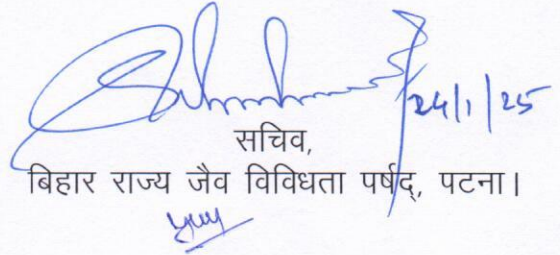 24/1/25
सचिव,
बिहार राज्य जैव विविधता पर्षद्, पटना।